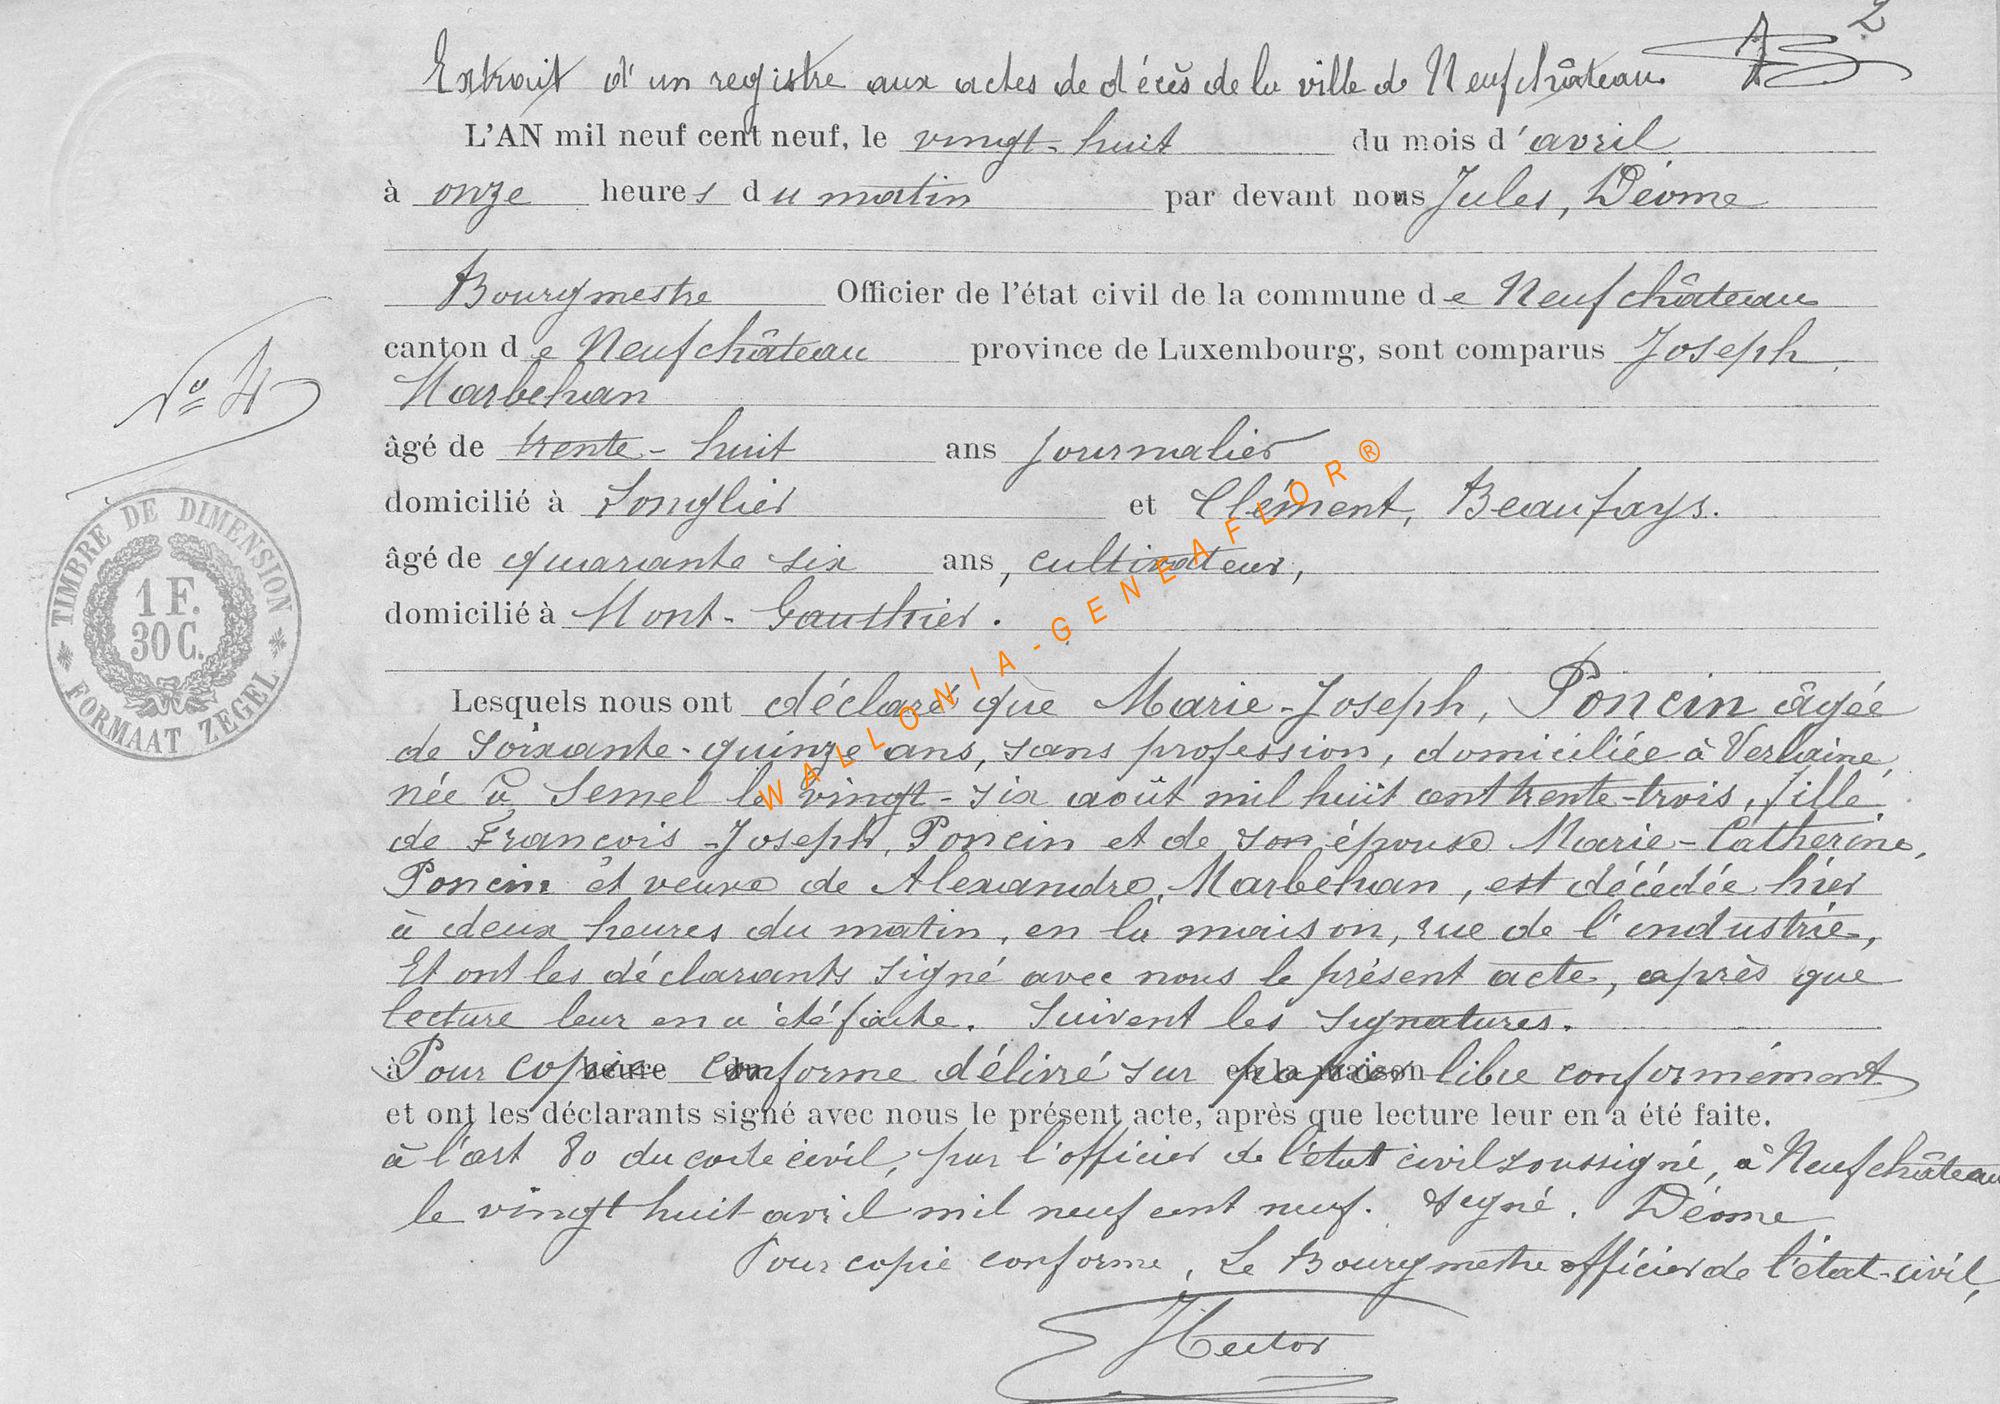 2
Extrait d'un registre aux actes de décès de la ville de Neufchâteau.
L'AN mil neuf cent neuf, le vingt-huit du mois d'avril
à onze heures du matin par devant nous Jules, Déome
Bourgmestre Officier de l'état civil de la commune de Neufchâteau
canton de Neufchâteau province de Luxembourg, sont comparus Joseph
Marbehan
Nº 4
âgé de trente-huit ans journalier
domicilié à Longlier et Clément, Beaufays.
âgé de quarante six ans, cultivateur,
domicilié à Mont-Gauthier.
TIMBRE DE DIMENSION
1 F.
30 C.
FORMAAT ZEGEL
WALLONIA-GENEAFLOR®
Lesquels nous ont déclaré que Marie-Joseph, Poncin âgée
de soixante-quinze ans, sans profession, domiciliée à Verlaine,
née à Semel le vingt-six août mil huit cent trente-trois, fille
de François-Joseph, Poncin et de son épouse Marie-Catherine,
Poncin et veuve de Alexandre, Marbehan, est décédée hier
à deux heures du matin, en la maison, rue de l'industrie,
Et ont les déclarants signé avec nous le présent acte, après que
lecture leur en a été faite. Suivent les signatures.
à heure du en la maison
Pour copie conforme délivré sur papier libre conformément
et ont les déclarants signé avec nous le présent acte, après que lecture leur en a été faite.
à l'art 80 du code civil, par l'officier de l'état civil soussigné, à Neufchâteau
le vingt huit avril mil neuf cent neuf. Signé. Déome
Pour copie conforme, Le Bourgmestre officier de l'état-civil,
Hector